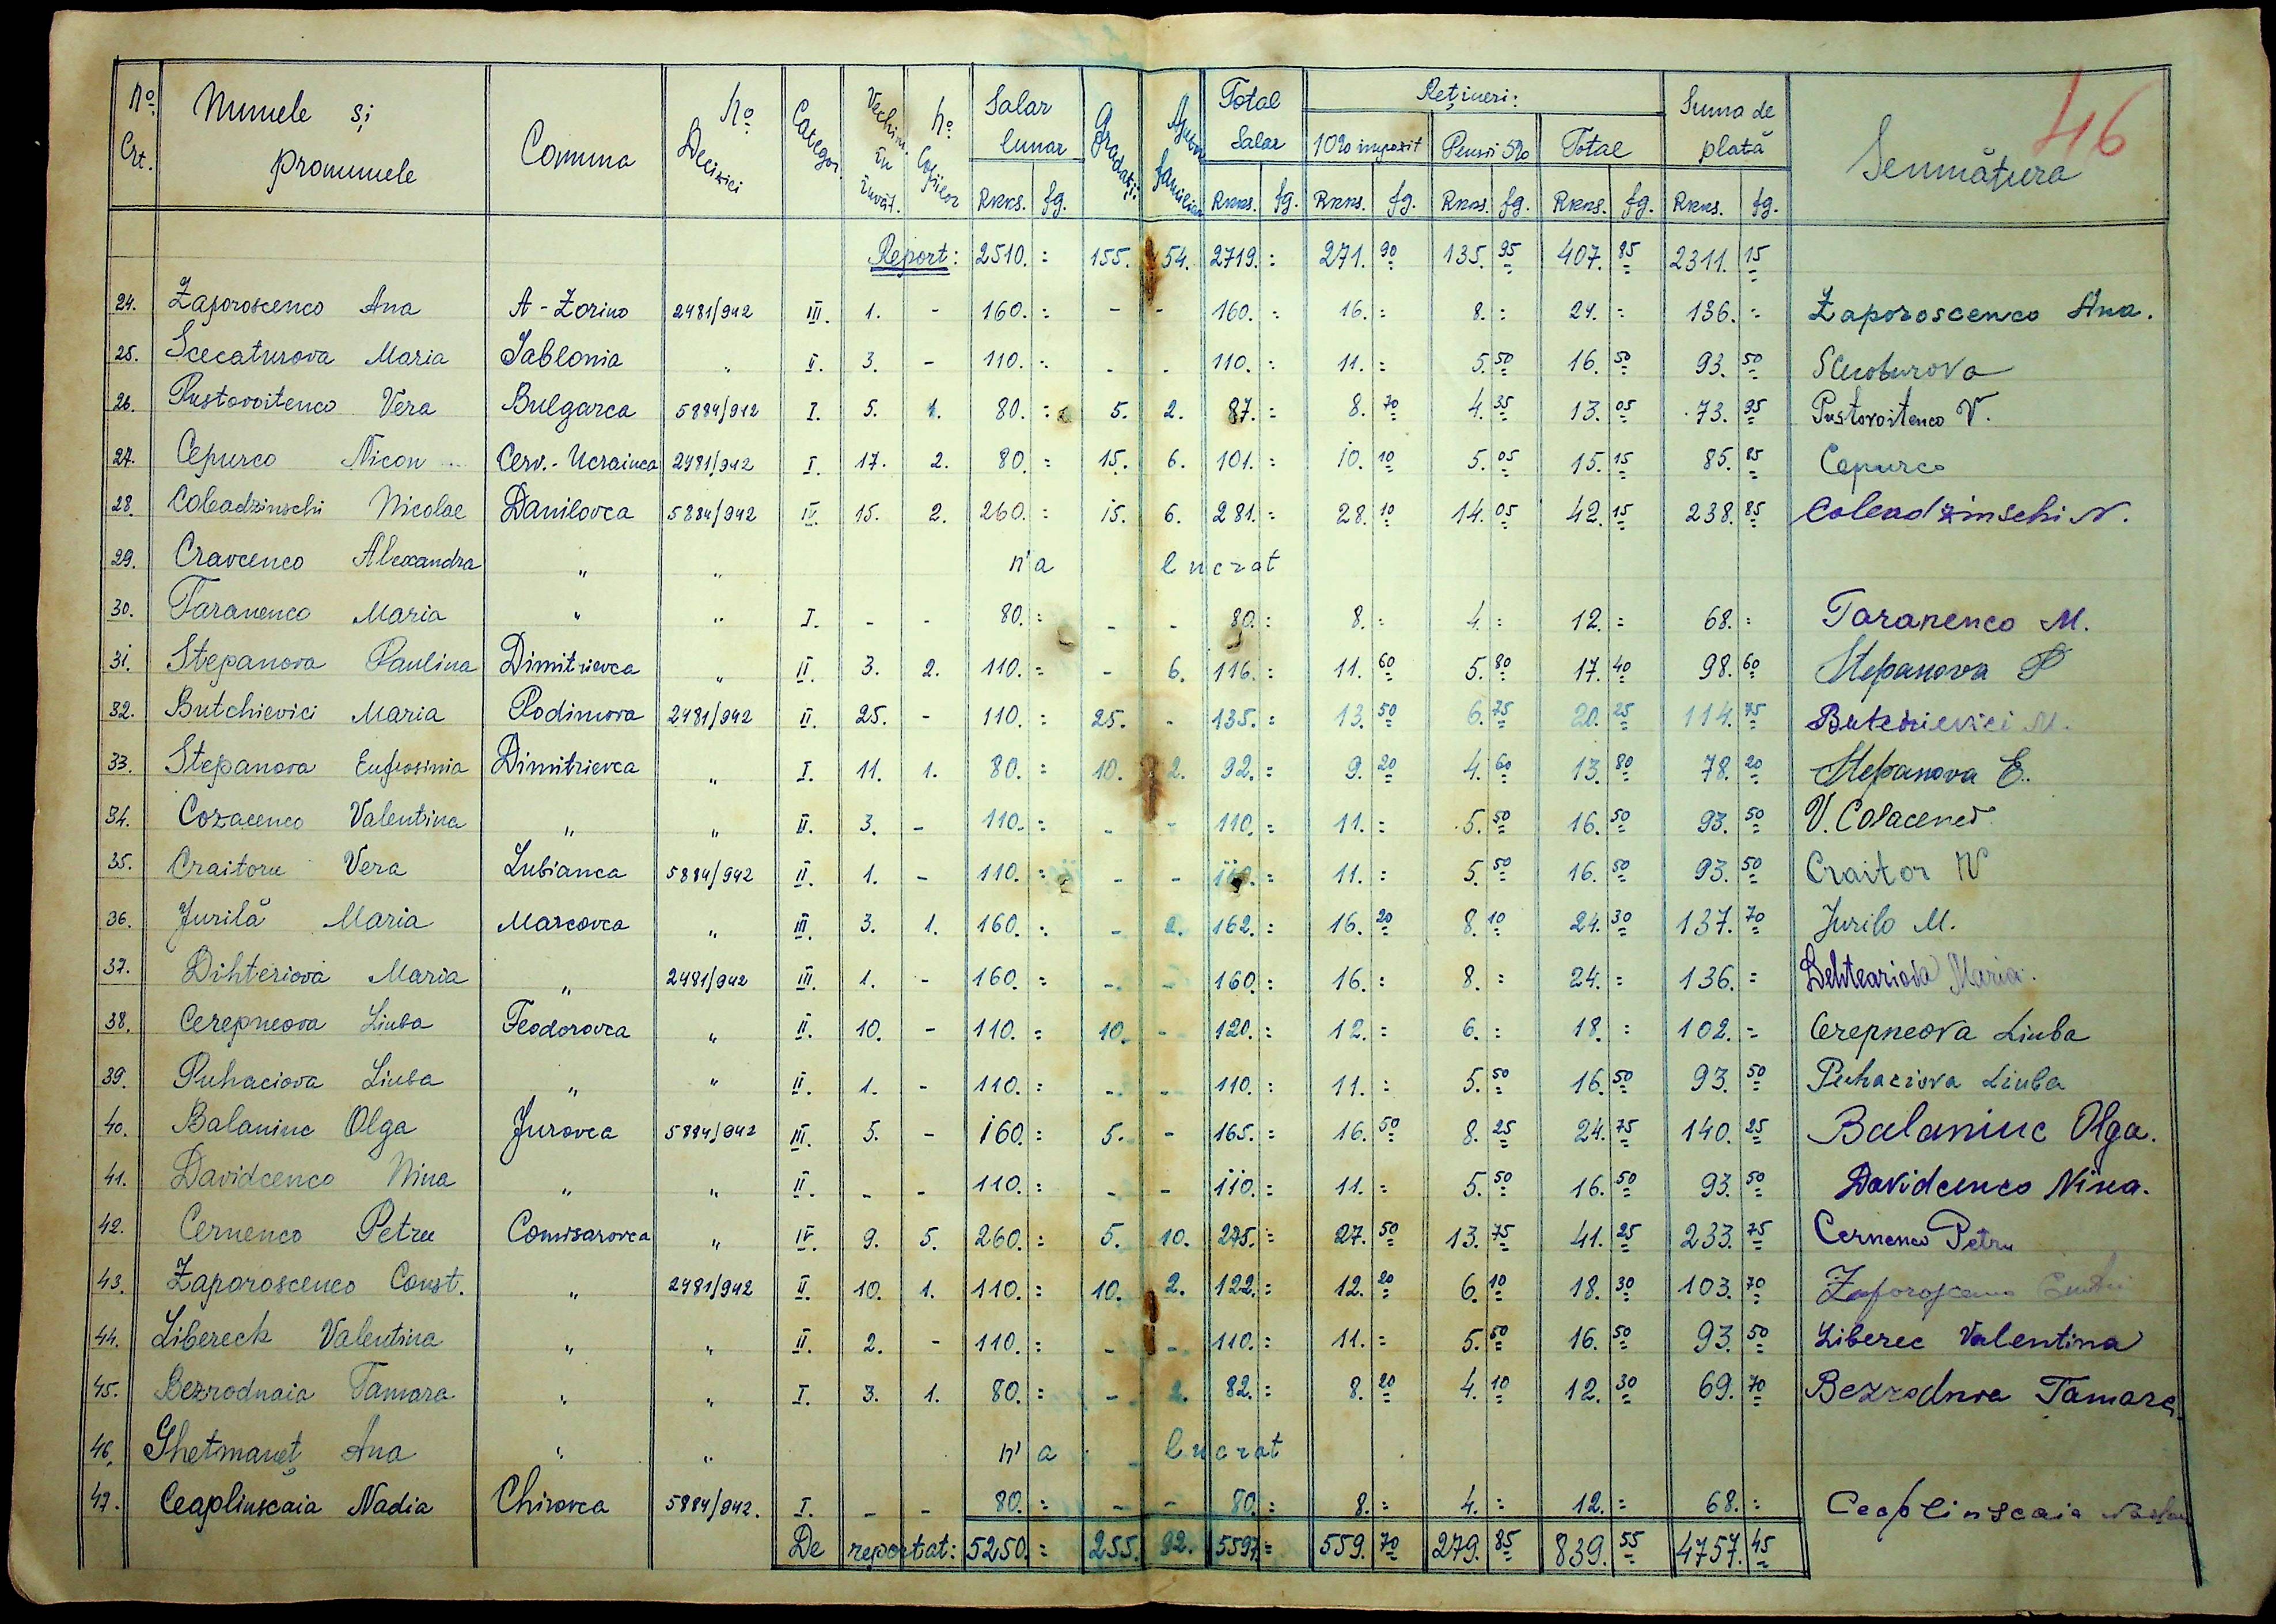 46
No. Crt. Numele și pronumele Comuna No. Decizici Categor. Vechim. în învăț. No. Copiilor Salar lunar Gradații Ajutor familiar Total Salar Rețineri: Suma de plată Semnătura
10% impozit Pensii 5% Total
Rkks. fg. Rkks. fg. Rkks. fg. Rkks. fg. Rkks. fg. Rkks. fg.
Report: 2510. = 155. 54. 2719. = 271. 90 135. 95 407. 85 2311. 15
24. Zaporoscenco Ana A-Zorino 2481/942 III. 1. - 160. = - - 160. = 16. = 8. = 24. = 136. = Zaporoscenco Ana.
25. Scecaturova Maria Iablonia " II. 3. - 110. = - - 110. = 11. = 5. 50 16. 50 93. 50
26. Pustovoitenco Vera Bulgarca 5884/942 I. 5. 1. 80. = 5. 2. 87. = 8. 70 4. 35 13. 05 73. 95 Pustovoitenco V.
27. Cepurco Nicon Cerv.-Ucrainca 2481/942 I. 17. 2. 80. = 15. 6. 101. = 10. 10 5. 05 15. 15 85. 85 Cepurco
28. Coleadzinschi Nicolae Danilovca 5884/942 IV. 15. 2. 260. = 15. 6. 281. = 28. 10 14. 05 42. 15 238. 85 Coleadzinschi N.
29. Cravcenco Alexandra " " n'a lucrat
30. Taranenco Maria " " I. - - 80. = - - 80. = 8. = 4. = 12. = 68. = Taranenco M.
31. Stepanova Paulina Dimitrievca " II. 3. 2. 110. = - 6. 116. = 11. 60 5. 80 17. 40 98. 60 Stepanova P
32. Butchievici Maria Podimova 2481/942 II. 25. - 110. = 25. - 135. = 13. 50 6. 75 20. 25 114. 75 Butchievici M.
33. Stepanova Eufrosinia Dimitrievca " I. 11. 1. 80. = 10. 2. 92. = 9. 20 4. 60 13. 80 78. 20 Stepanova E.
34. Cozacenco Valentina " " II. 3. - 110. = - - 110. = 11. = 5. 50 16. 50 93. 50
35. Craitoru Vera Lubianca 5884/942 II. 1. - 110. = - - 110. = 11. = 5. 50 16. 50 93. 50 Craitor V
36. Jurilă Maria Marcovca " III. 3. 1. 160. = - 2. 162. = 16. 20 8. 10 24. 30 137. 70 Jurilo M.
37. Dihteriova Maria " 2481/942 III. 1. - 160. = - - 160. = 16. = 8. = 24. = 136. = Dehteariova Maria.
38. Cerepneova Liuba Feodorovca " II. 10. - 110. = 10. - 120. = 12. = 6. = 18. = 102. = Cerepneova Liuba
39. Puhaciova Liuba " " II. 1. - 110. = - - 110. = 11. = 5. 50 16. 50 93. 50 Puhaciova Liuba
40. Balaniuc Olga Jurovca 5884/942 III. 5. - 160. = 5. - 165. = 16. 50 8. 25 24. 75 140. 25 Balaniuc Olga.
41. Davidcenco Nina " " II. - - 110. = - - 110. = 11. = 5. 50 16. 50 93. 50 Davidcenco Nina.
42. Cernenco Petru Comisarovca " IV. 9. 5. 260. = 5. 10. 275. = 27. 50 13. 75 41. 25 233. 75 Cernenco Petru
43. Zaporoscenco Const. " 2481/942 II. 10. 1. 110. = 10. 2. 122. = 12. 20 6. 10 18. 30 103. 70
44. Libereck Valentina " " II. 2. - 110. = - - 110. = 11. = 5. 50 16. 50 93. 50 Liberec Valentina
45. Bezrodnaia Tamara " " I. 3. 1. 80. = - 2. 82. = 8. 20 4. 10 12. 30 69. 70 Bezrodnoa Tamara
46. Ghetmaneț Ana " " n'a lucrat
47. Ceaplinscaia Nadia Chirovca 5884/942. I. - - 80. = - - 80. = 8. = 4. = 12. = 68. = Ceaplinscaia
De reportat: 5250. = 255. 92. 5597. = 559. 70 279. 85 839. 55 4757. 45